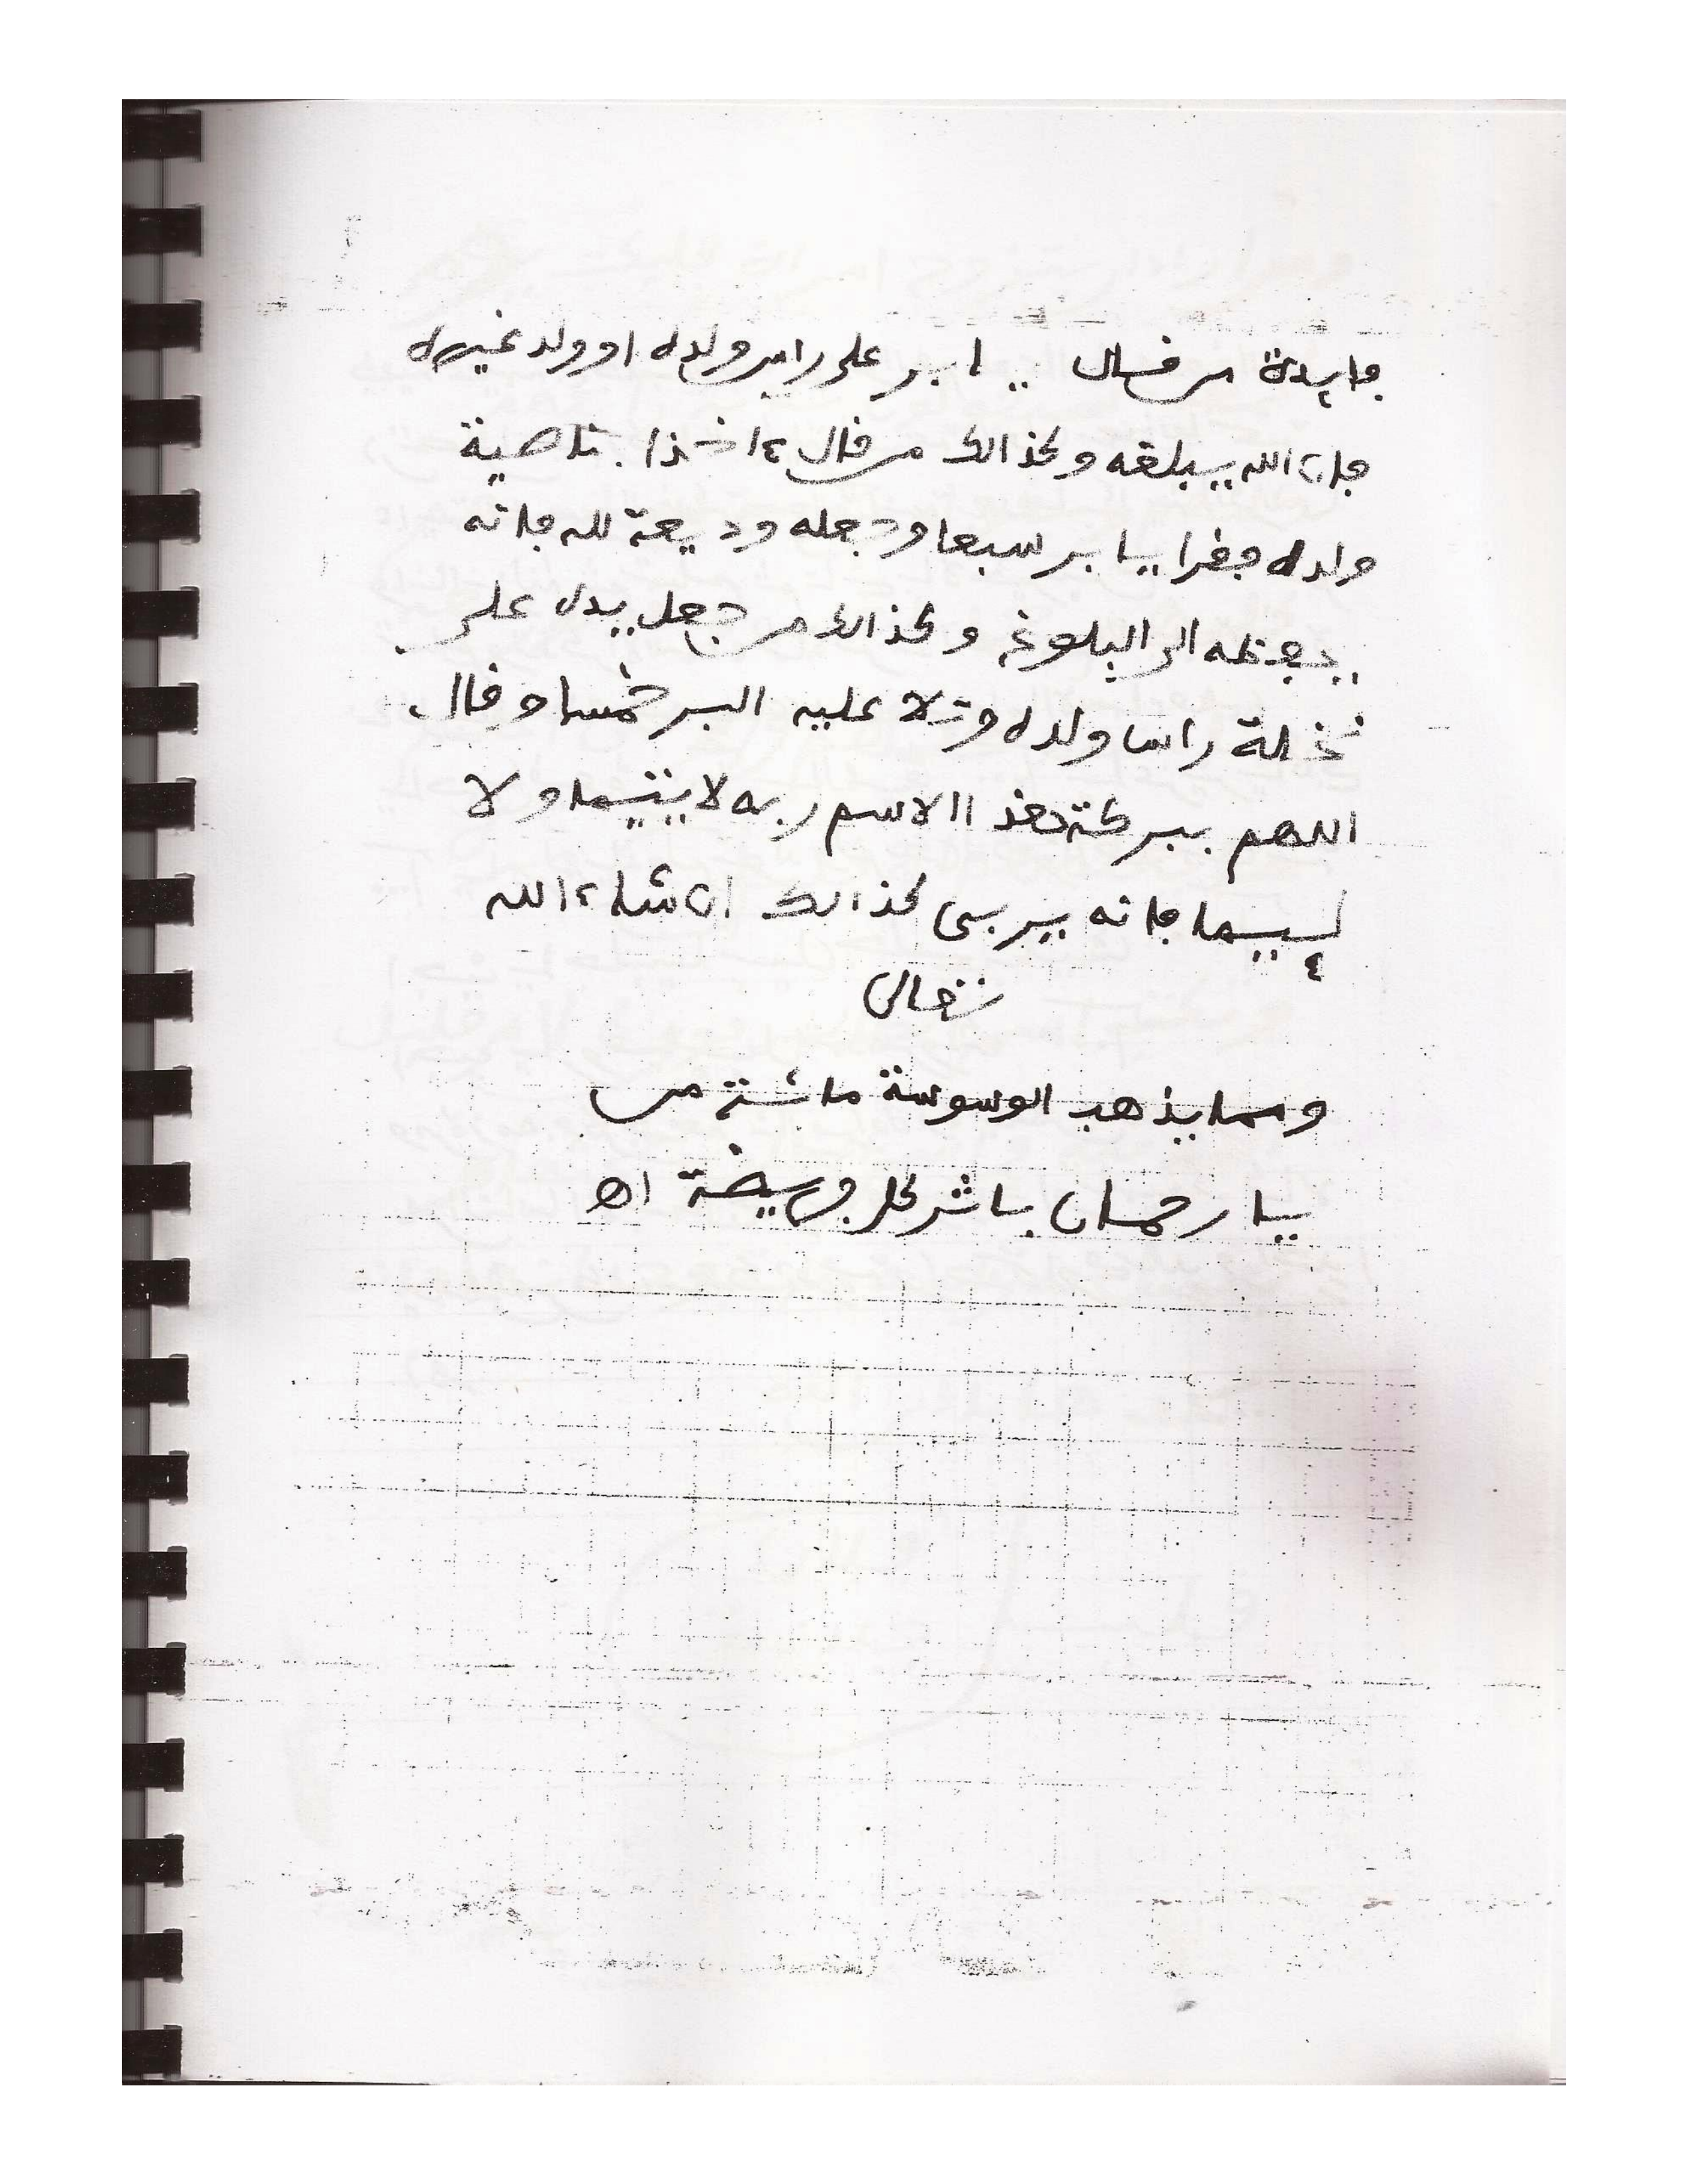 فايدة من قال .. ابر على راس ولده او ولد غيره
فان الله يبلغه وكذالك من قال ءاخذا بناصية
ولده فقرا يا بر سبعا وجعله وديعة لله فانه
يحفظه الى البلوغ وكذالك من جعل يده على
نخلة راس ولده وتلا عليه البر خمسا وقال
اللهم ببركة هذا الاسم ربه لا يتيما ولا
لييما فانه يربى كذالك ان شاء الله
تعالى
ومما يذهب الوسوسة مائة من
يا رحمان باثر كل فريضة اه